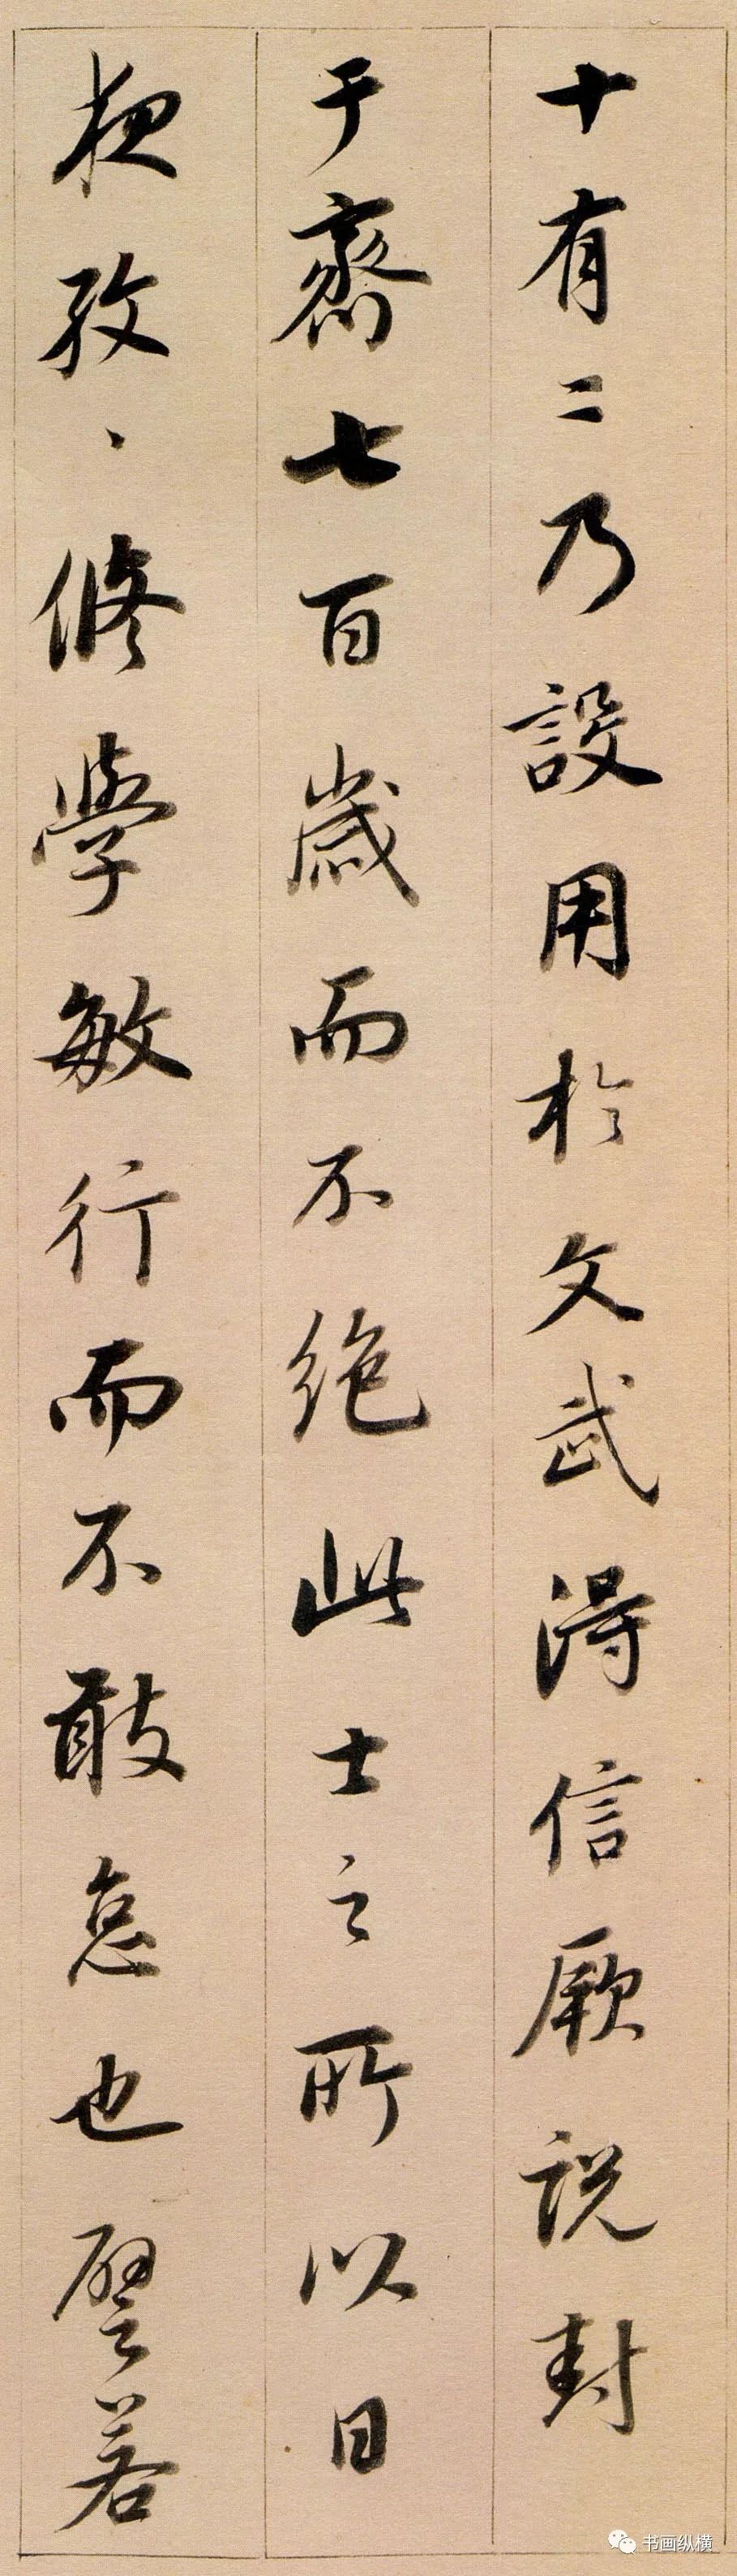 十有二乃設用於文武得信厥説封
于齋七百歲而不絶此士之所以日
夜孜、修學敏行而不敢怠也譬若
书画纵横